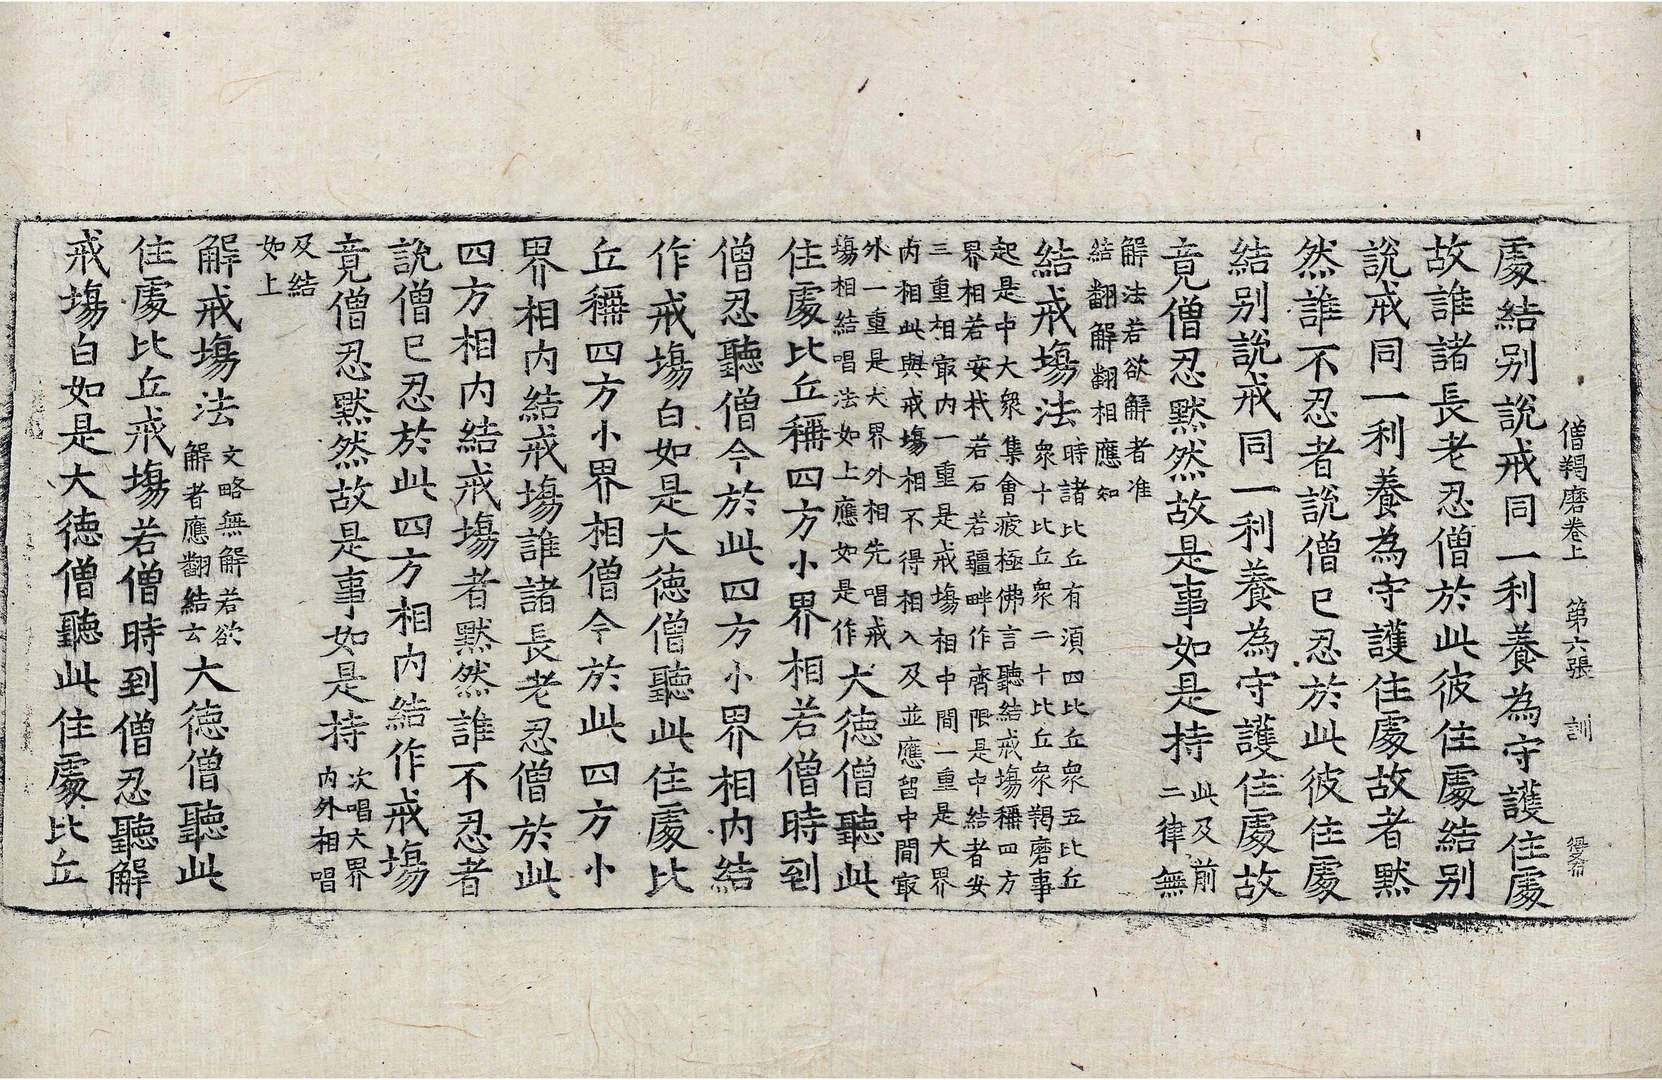 僧羯磨卷上 第六張 訓
處結别說戒同一利養為守護住處
故誰諸長老忍僧於此彼住處結别
說戒同一利養為守護住處故者黙
然誰不忍者說僧已忍於此彼住處
結别說戒同一利養為守護住處故
竟僧忍黙然故是事如是持 此及前
二律無
解法若欲解者准
結翻解翻相應知
結戒塲法 時諸比丘有湏四比丘衆五比丘
衆十比丘衆二十比丘衆羯磨事
起是中大衆集會疲極佛言聽結戒塲稱四方
界相若安杙若石若疆畔作齊限是中結者安
三重相㝡内一重是戒塲相中間一重是大界
内相此與戒塲相不得相入及並應留中間㝡
外一重是大界外相先唱戒
塲相結唱法如上應如是作 大德僧聽此
住處比丘稱四方小界相若僧時到
僧忍聽僧今於此四方小界相内結
作戒塲白如是大德僧聽此住處比
丘稱四方小界相僧今於此四方小
界相内結戒塲誰諸長老忍僧於此
四方相内結戒塲者黙然誰不忍者
說僧已忍於此四方相内結作戒塲
竟僧忍黙然故是事如是持 次唱大界
内外相唱
及結
如上
解戒塲法 文略無解若欲
解者應翻結云 大德僧聽此
住處比丘戒塲若僧時到僧忍聽解
戒塲白如是大德僧聽此住處比丘